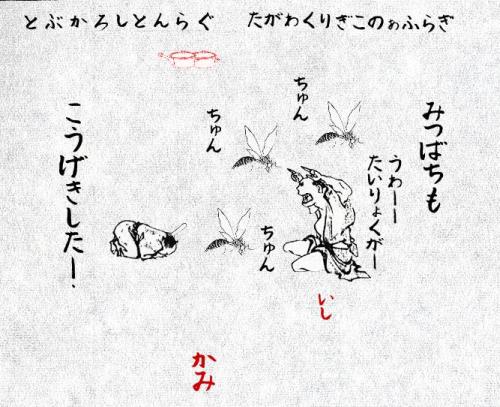 とぶかろしとんらぐ　たがわくりぎこのぁふらぎ
みつばちも
こうげきしたー！
うわーー
たいりょくがー
ちゅん
ちゅん
ちゅん
いし
かみ